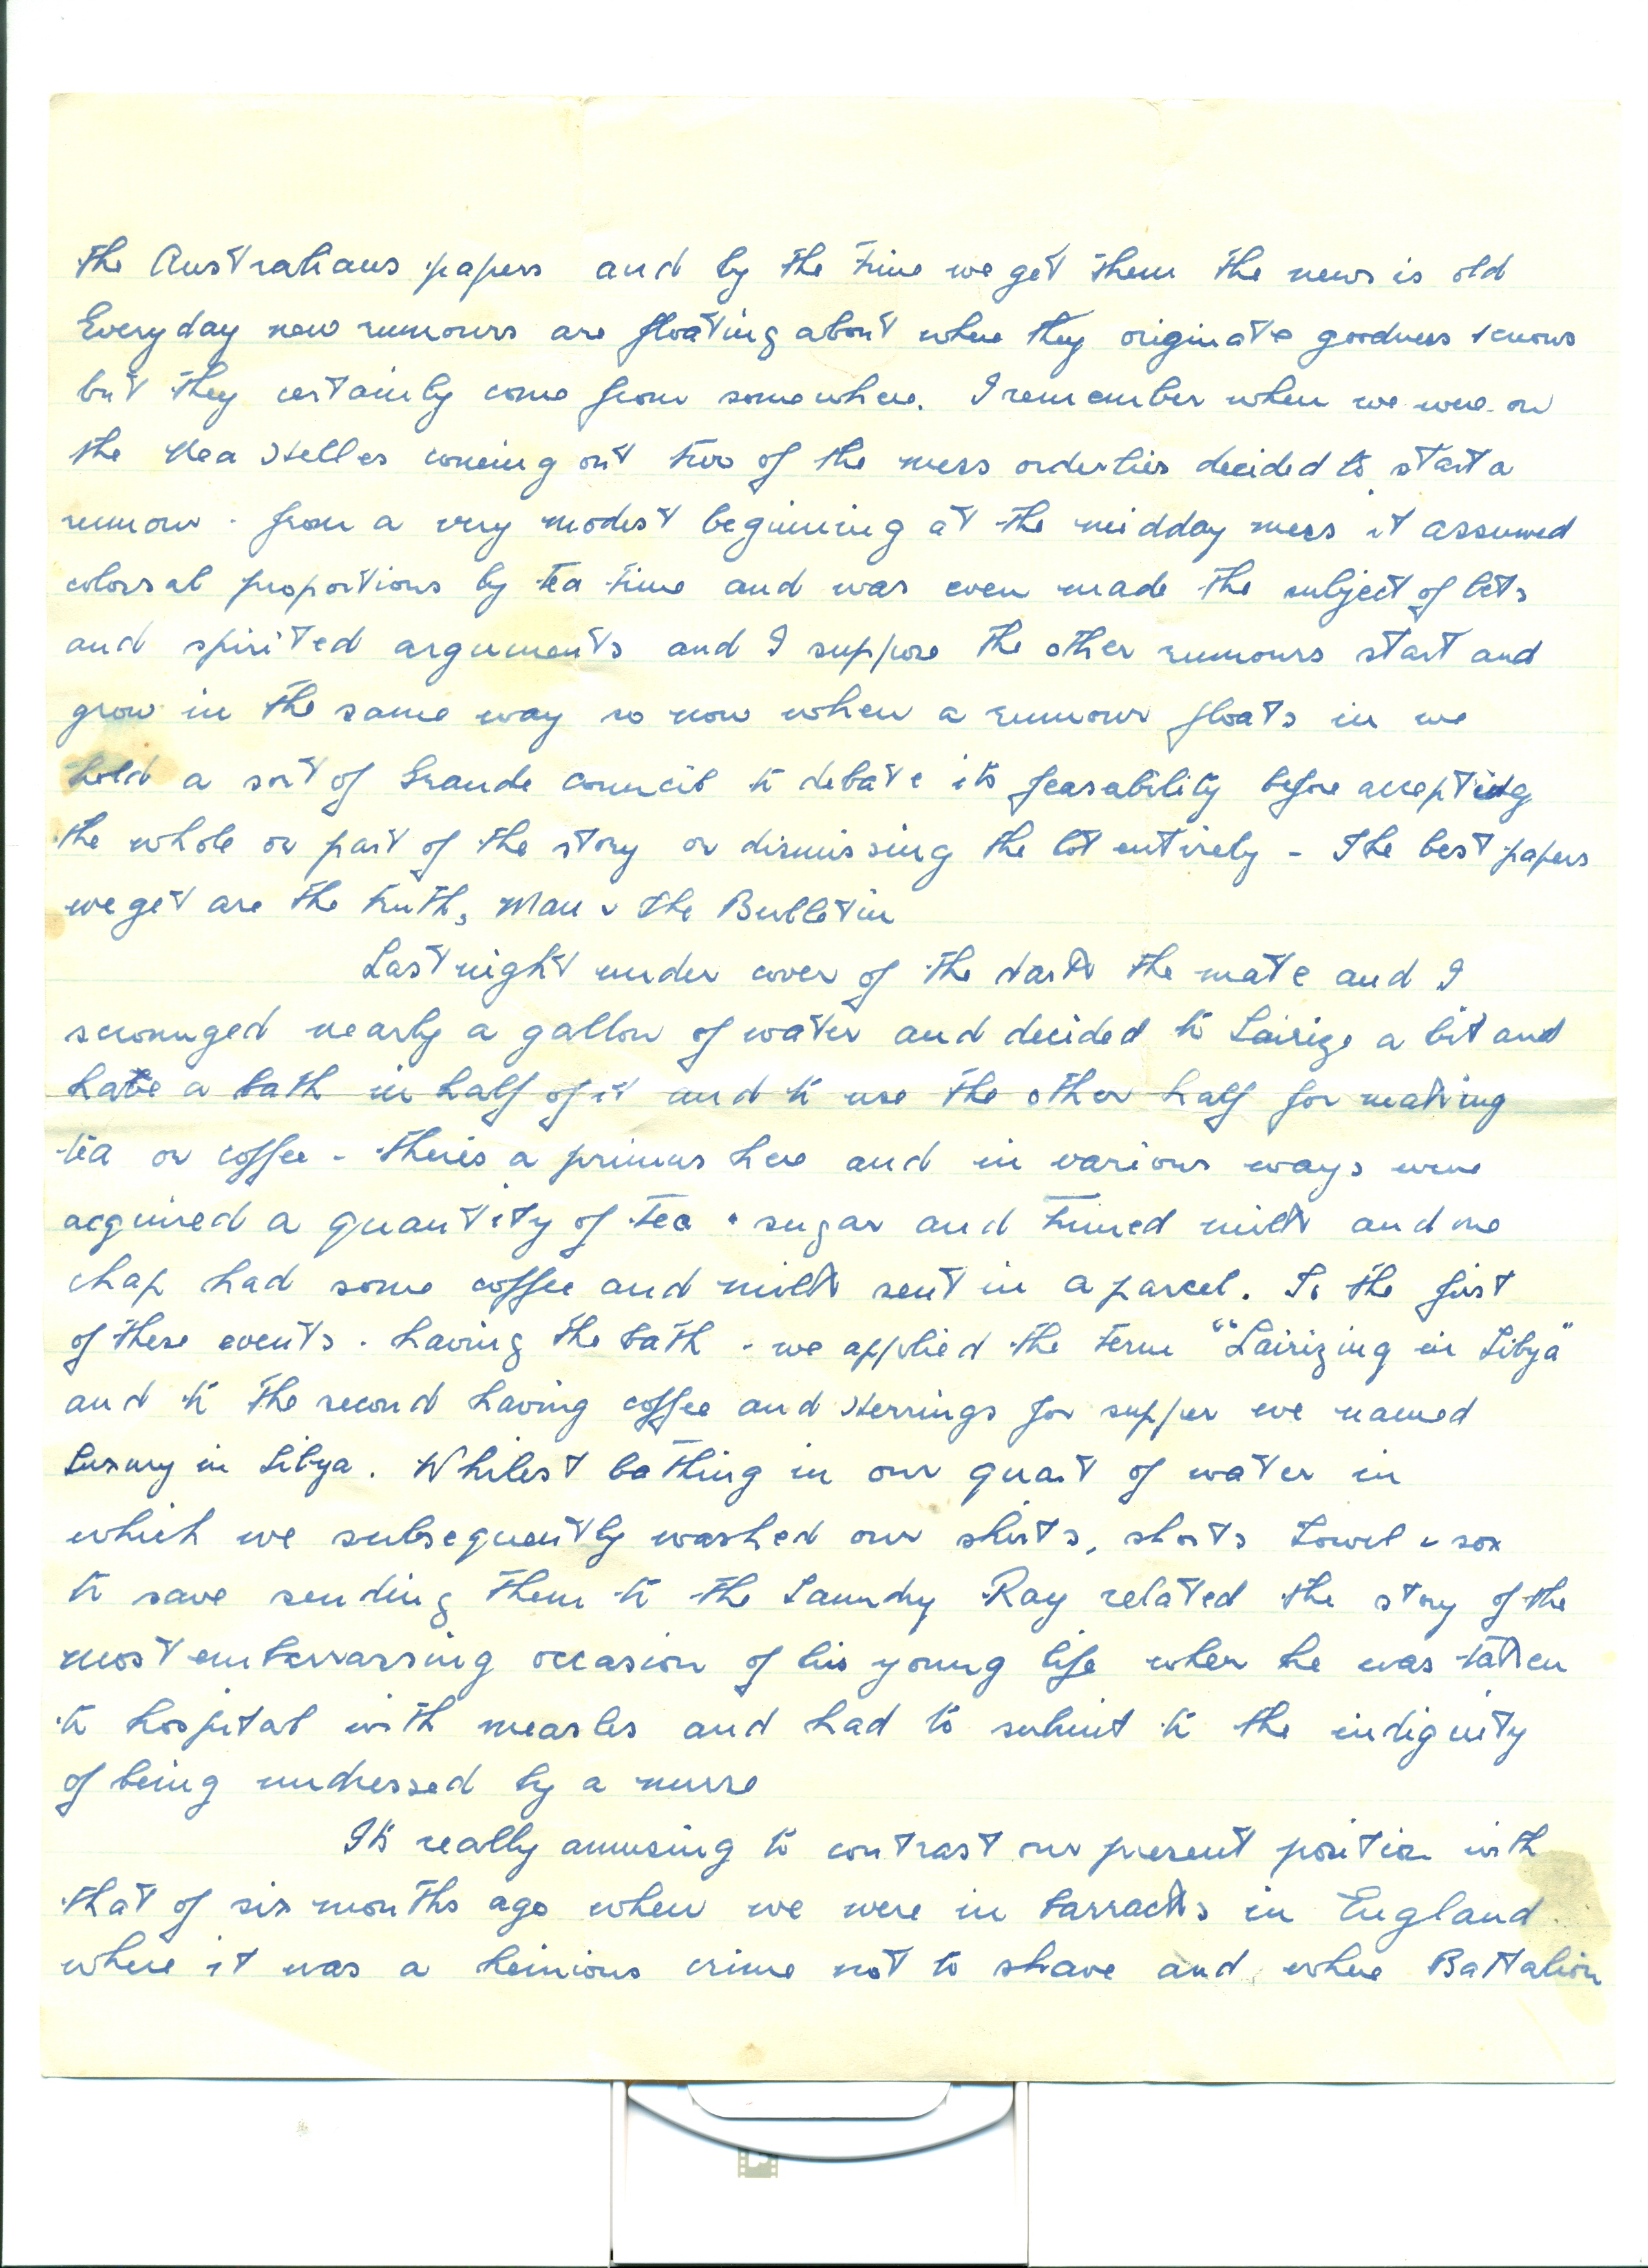 the Australians papers and by the time we get them the news is old
Everyday new rumours are floating about where they originate goodness knows
but they certainly come from somewhere. I remember when we were on
the Nea Helles coming out two of the mess orderlies decided to start a
rumour. from a very modest beginning at the midday mess it assumed
colossal proportions by tea time and was even made the subject of bets
and spirited arguments and I suppose the other rumours start and
grow in the same way so now when a rumour floats in we
hold a sort of Grande Council to debate its feasability before accepting
the whole or part of the story or dismissing the lot entirely - The best papers
we get are the Truth, Man & the Bulletin
Last night under cover of the dark the mate and I
scrounged nearly a gallon of water and decided to Lairize a bit and
have a bath in half of it and to use the other half for making
tea or coffee - theres a primus here and in various ways weve
acquired a quantity of tea & sugar and tinned milk and one
chap had some coffee and milk sent in a parcel. To the first
of these events. having the bath - we applied the term "Lairizing in Libya"
and to the second having coffee and Herrings for supper we named
Luxury in Libya. Whilest bathing in our quart of water in
which we subsequently washed our shirts, shorts towel & sox
to save sending them to the Laundry Ray related the story of the
most embarrassing occasion of his young life when he was taken
to hospital with measles and had to submit to the indignity
of being undressed by a nurse
Its really amusing to contrast our present position with
that of six months ago when we were in barracks in England
where it was a heinious crime not to shave and where Battalion